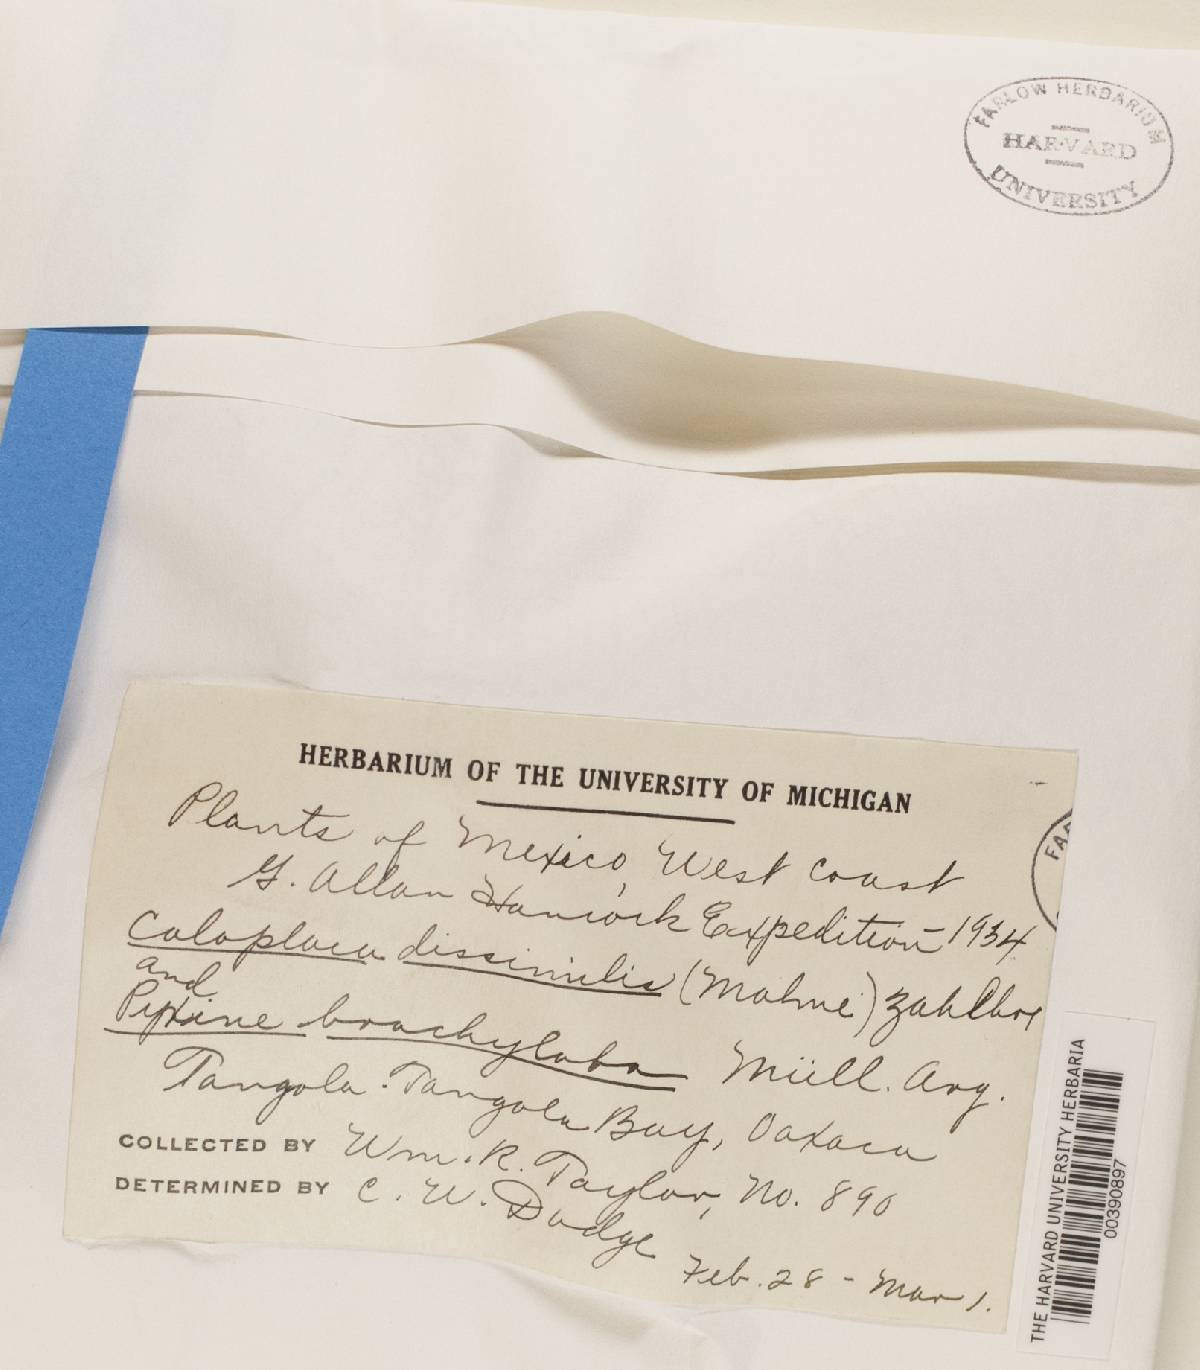 FARLOW HERBARIUM
HARVARD
UNIVERSITY
HERBARIUM OF THE UNIVERSITY OF MICHIGAN
Plants of Mexico, West Coast
G. Allan Hancock Expedition 1934
FA
Caloplaca dissimilis (Malme) Zahlbr
and
Pyxine brachyloba Müll. Arg.
Tangola-Tangola Bay, Oaxaca
COLLECTED BY Wm. R. Taylor, No. 890
DETERMINED BY C. W. Dodge
Feb. 28 - Mar 1.
THE HARVARD UNIVERSITY HERBARIA
00390897